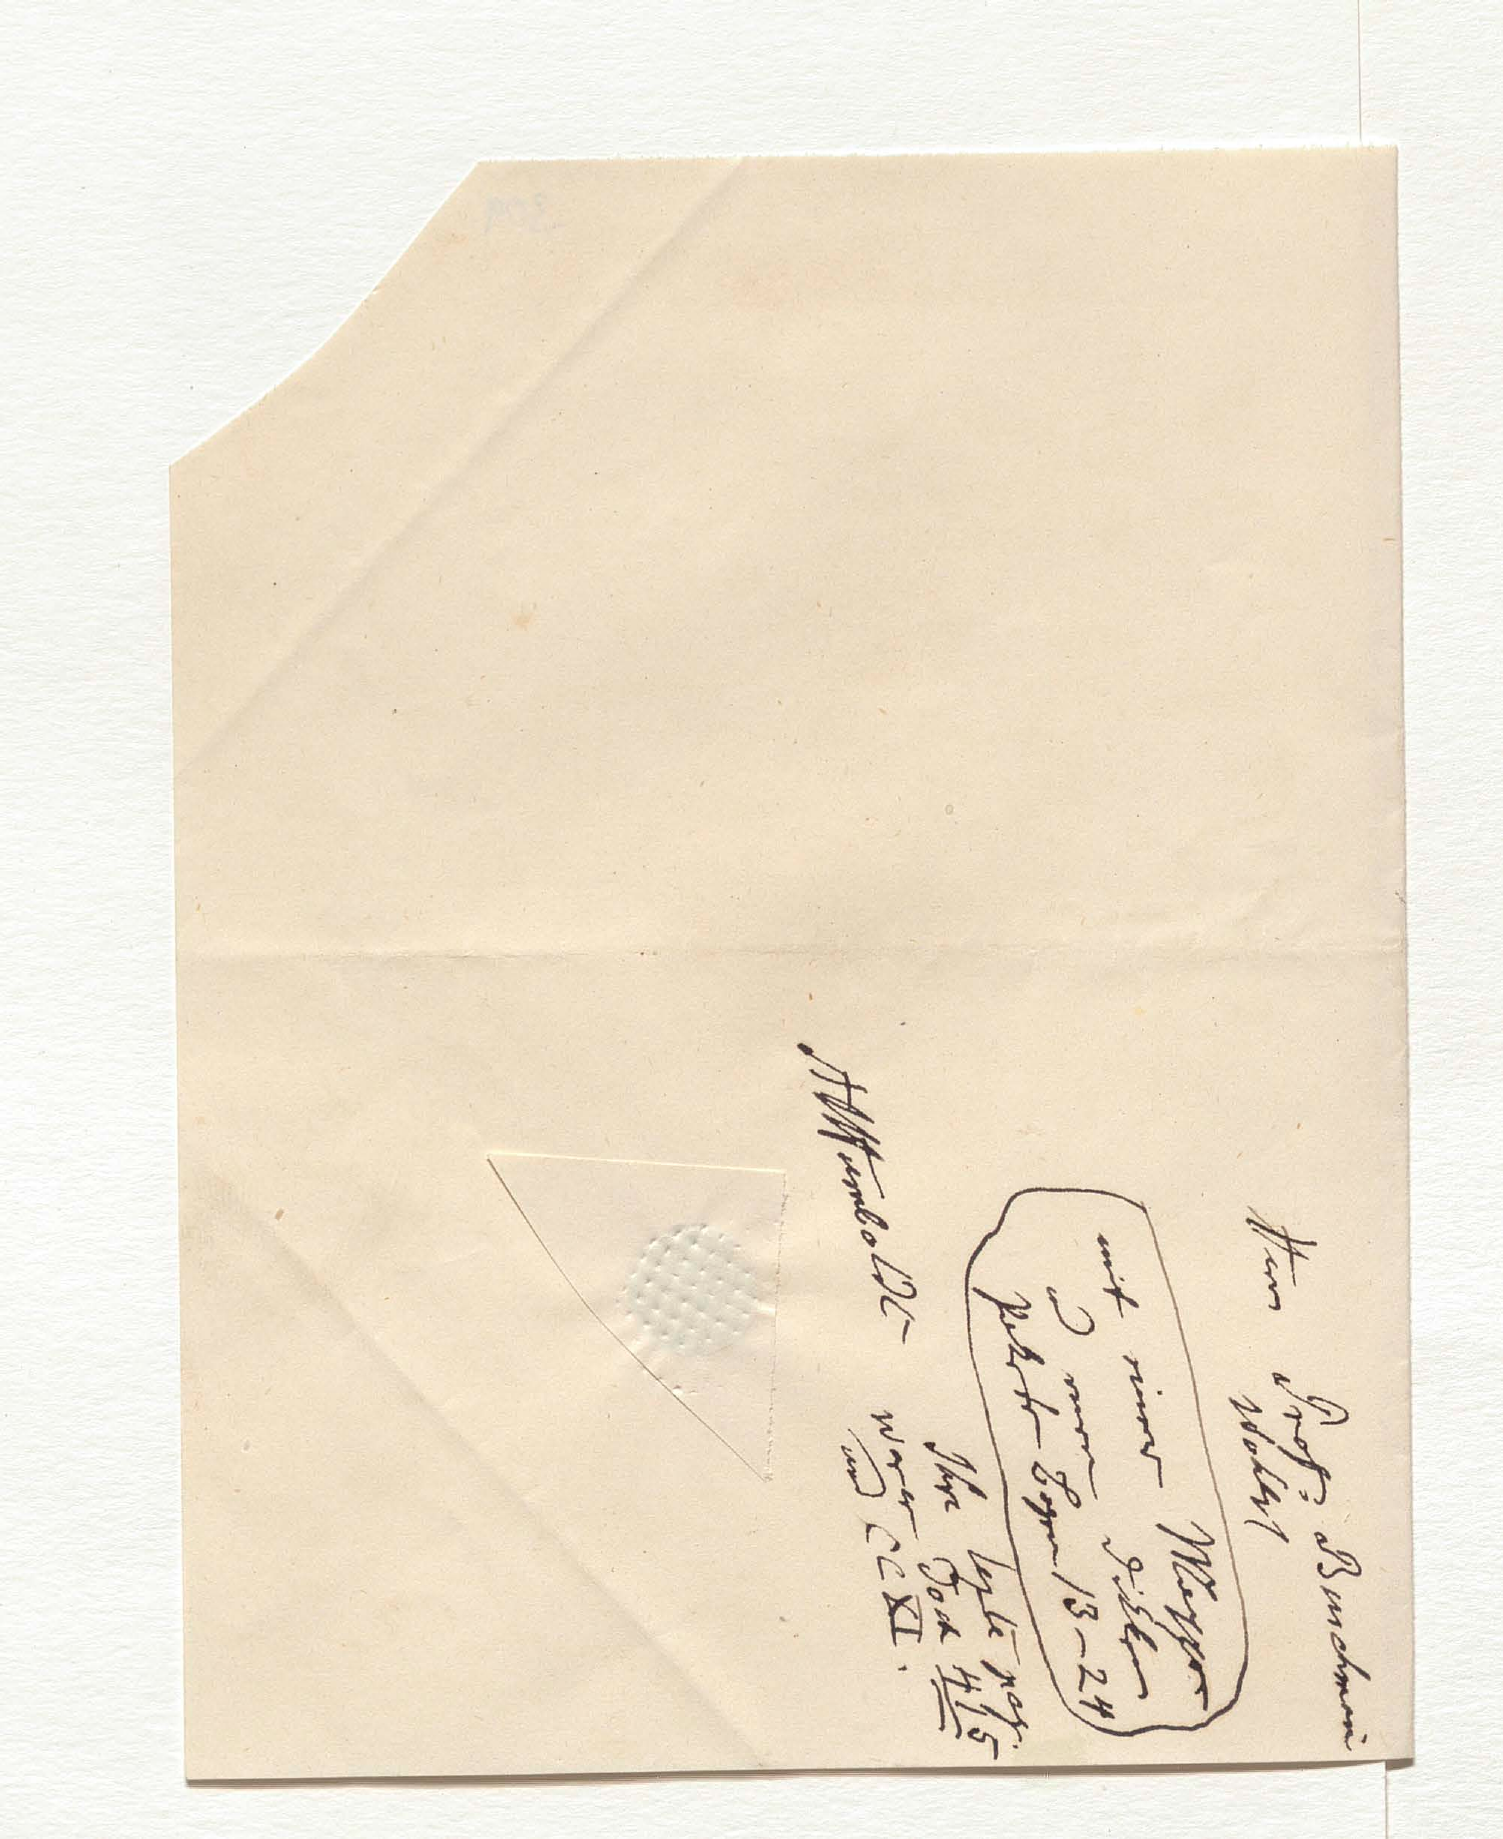 Herrn Prof: Buschmann
Wohlg
mit einer Mappe
u einem dicken
Pakete Bogen 13–24
Ihre lezte pag.
war doch 415
und CCXI.
AlHumboldt